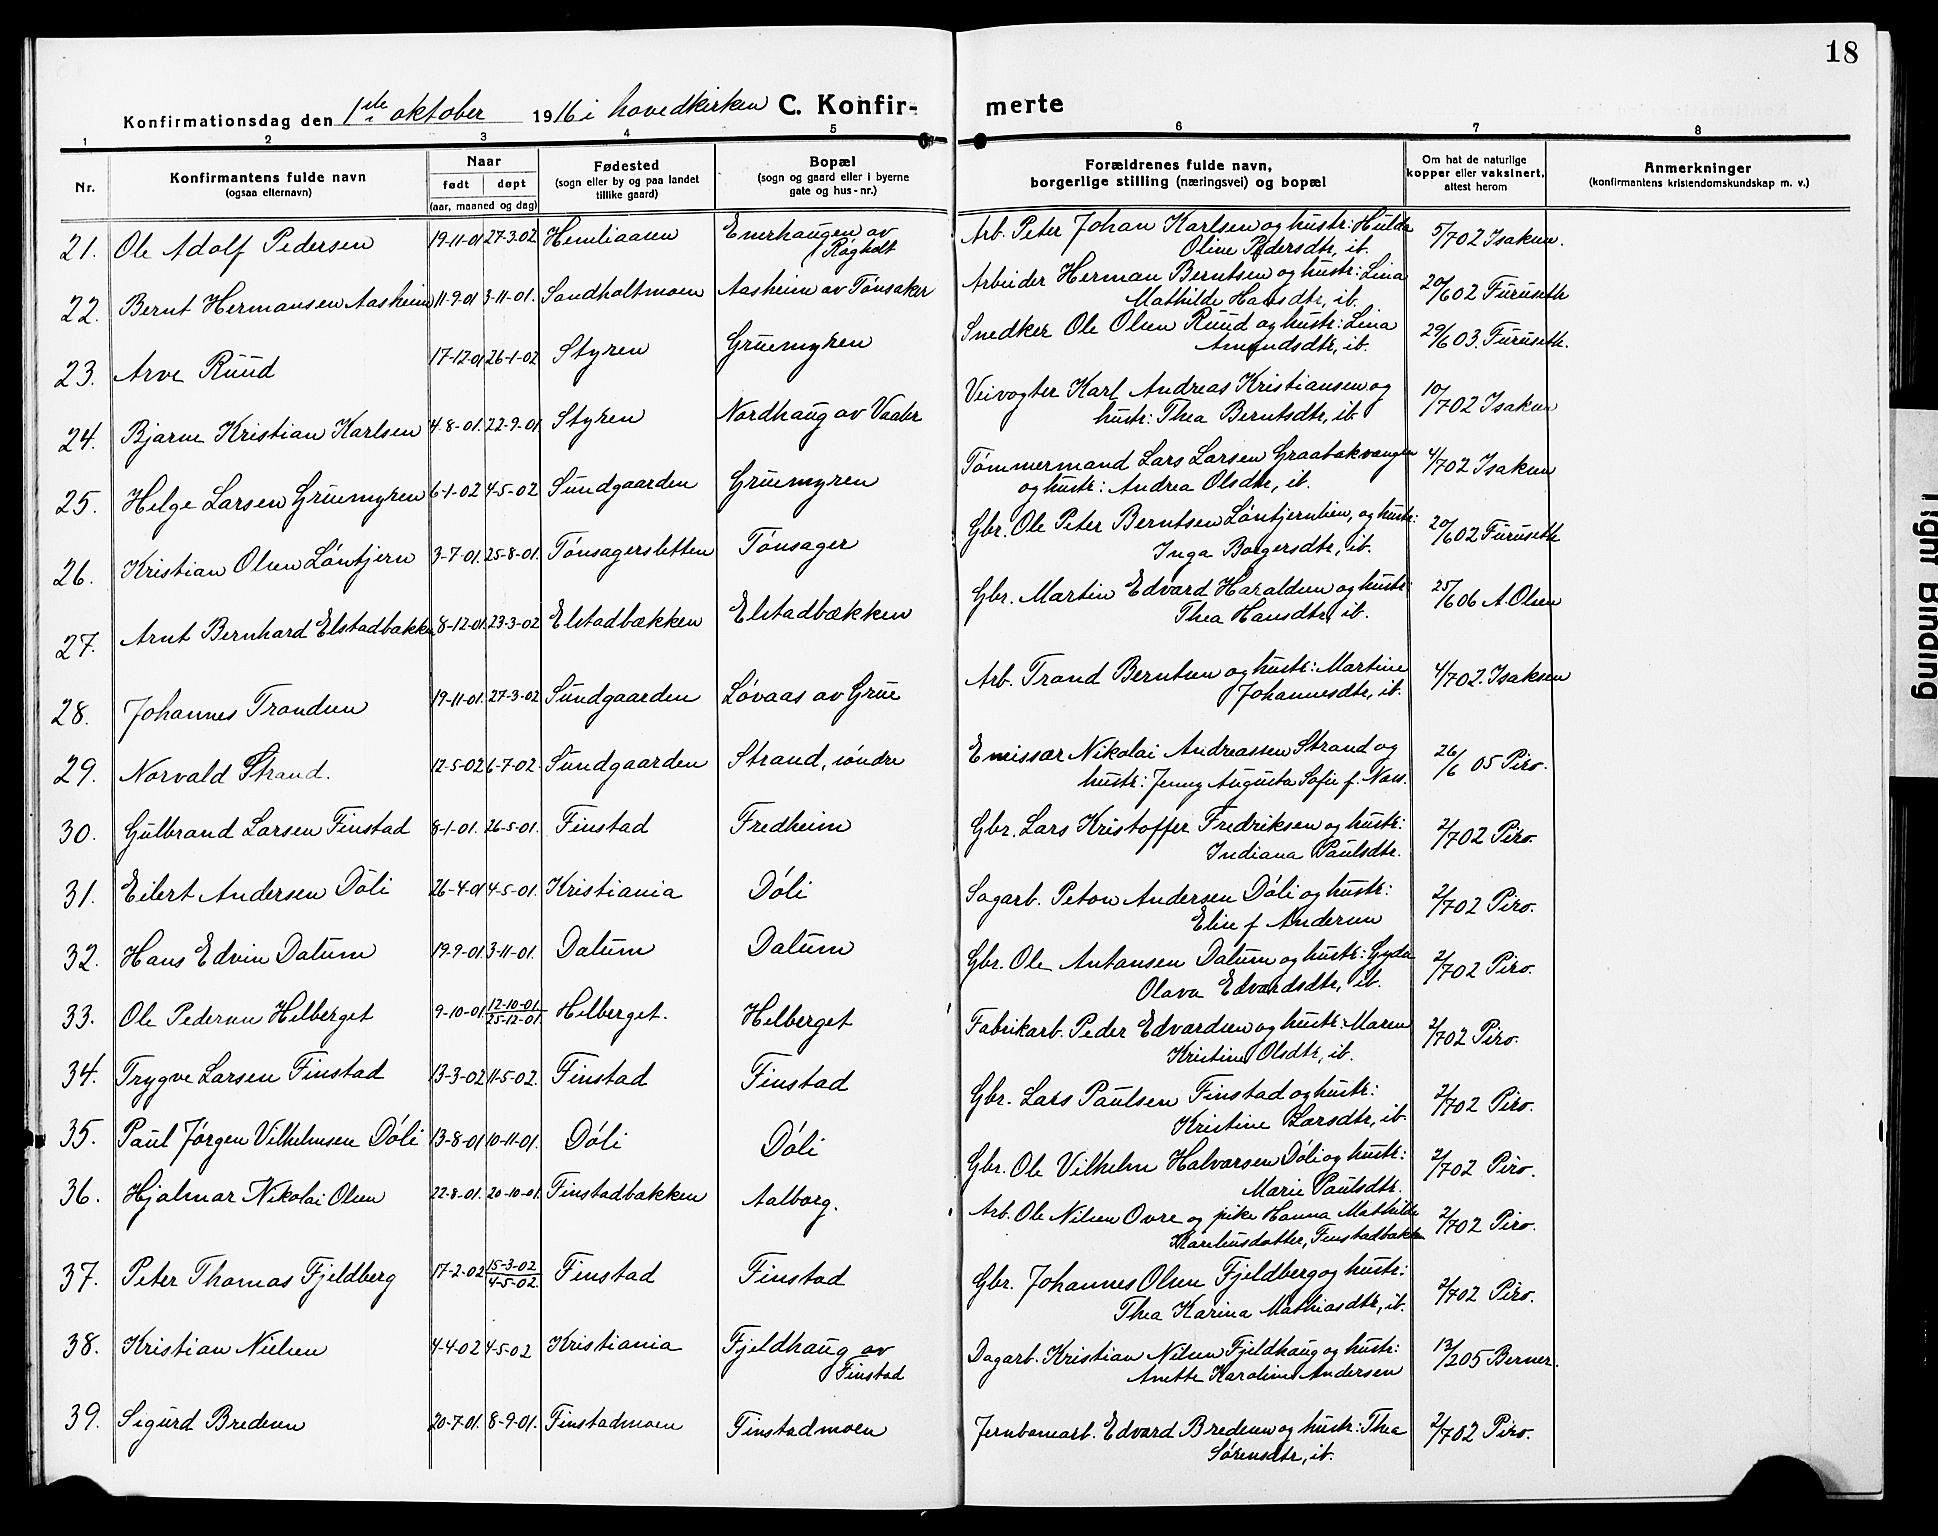 18
Konfirmationsdag den 1ste oktober 1916 i hovedkirken C. Konfir- merte
1 2 3 4 5 6 7 8
Nr. Konfirmantens fulde navn (ogsaa efternavn) Naar født døpt (aar, maaned og dag) Fødested (sogn eller by og paa landet tillike gaard) Bopæl (sogn og gaard eller i byerne gate og hus-nr.) Forældrenes fulde navn, borgerlige stilling (næringsvei) og bopæl Om hat de naturlige kopper eller vaksinert, attest herom Anmerkninger (konfirmantens kristendomskundskap m. v.)
21. Ole Adolf Pedersen 19-11-01 27-3-02 Hemliaasen Enerhaugen av Røgholt Arb. Peter Johan Karlsen og hustr: Hulda
Oline Pedersdtr, ib. 5/7 02 Isaksen.
22. Bernt Hermansen Aasheim 11-9-01 3-11-01. Sandholtmoen Aasheim av Tønsaker Arbeider Herman Berntsen og hustr: Lina
Mathilde Hansdtr, ib. 20/6 02 Furuseth
23. Arve Ruud 17-12-01 26-1-02 Styren Gruemyren Snedker Ole Olsen Ruud og hustr: Lina
Amundsdtr, ib. 29/6 03. Furuseth.
24. Bjarne Kristian Karlsen 4-8-01. 22-9-01 Styren Nordhaug av Vaaler Veivogter Karl Andreas Kristiansen og
hustr: Thea Berntsdtr, ib 10/7 02 Isaksen
25. Helge Larsen Gruemyren 6-1-02 4-5-02 Sundgaarden Gruemyren Tømmermand Lars Larsen Graabakvangen
og hustr: Andrea Olsdtr, ib. 4/7 02 Isaksen
26. Kristian Olsen Løntjern 3-7-01. 25-8-01. Tønsagersletten Tønsager Gbr. Ole Peter Berntsen Løntjernlien, og hustr:
Inga Borgersdtr, ib. 20/6 02 Furuseth
27. Arnt Bernhard Elstadbakken 8-12-01. 23-3-02 Elstadbækken Elstadbækken Gbr. Martin Edvard Haraldsen og hustr:
Thea Hansdtr, ib. 25/6 06 A. Olsen
28. Johannes Trondsen 19-11-01. 27-3-02 Sundgaarden Løvaas av Grue Arb. Trond Berntsen og hustr: Martine
Johannesdtr, ib. 4/7 02. Isaksen
29. Norvald Strand. 12-5-02 6-7-02. Sundgaarden Strand, søndre Emissær Nikolai Andreassen Strand og
hustr: Jenny Augusta Sofie f. Næss. 26/6 05 Piro.
30. Gulbrand Larsen Finstad 8-1-01. 26-5-01. Finstad Fredheim Gbr. Lars Kristoffer Fredriksen og hustr:
Indiana Paulsdtr. 2/7 02 Piro.
31. Eilert Andersen Døli 26-4-01 4-5-01. Kristiania Døli Sagarb. Peton Andersen Døli og hustr:
Elise f Andersen 2/7 02 Piro.
32. Hans Edvin Dalum 19-9-01. 3-11-01. Dalum Dalum Gbr. Ole Antonsen Dalum og hustr: Gyda
Olava Edvardsdtr, ib. 2/7 02 Piro.
33. Ole Pedersen Helberget 9-10-01. 12-10-01./25-12-01. Helberget. Helberget Fabrikarb. Peder Edvardsen og hustr: Maren
Kristine Olsdtr, ib. 2/7 02 Piro.
34. Trygve Larsen Finstad 13-3-02 11-5-02. Finstad Finstad Gbr. Lars Paulsen Finstad og hustr:
Kristine Larsdtr, ib. 2/7 02 Piro.
35. Paul Jørgen Vilhelmsen Døli 13-8-01 10-11-01. Døli Døli Gbr. Ole Vilhelm Halvorsen Døli og hustr:
Marie Paulsdtr. 2/7 02 Piro.
36. Hjalmar Nikolai Olsen 22-8-01. 20-10-01. Finstadbakken Aalborg. Arb. Ole Nilsen Ovre og pike Hanna Mathilde
Kareliusdatter, Finstadbakken 2/7 02 Piro.
37. Peter Thomas Fjeldberg 17-2-02 15-3-02/4-5-02. Finstad Finstad Gbr. Johannes Olsen Fjeldberg og hustr:
Thea Karina Mathiasdtr, ib. 2/7 02 Piro.
38. Kristian Nielsen 4-4-02 4-5-02 Kristiania Fjeldhaug av Finstad Dagarb. Kristian Nilsen Fjeldhaug og hustr:
Anette Karoline Andersen 13/2 05 Berner.
39. Sigurd Bredesen 20-7-01. 8-9-01. Finstadmoen Finstadmoen Jernbanearb. Edvard Bredesen og hustr: Thea
Sørensdtr, ib. 2/7 02 Piro.
Tight Binding